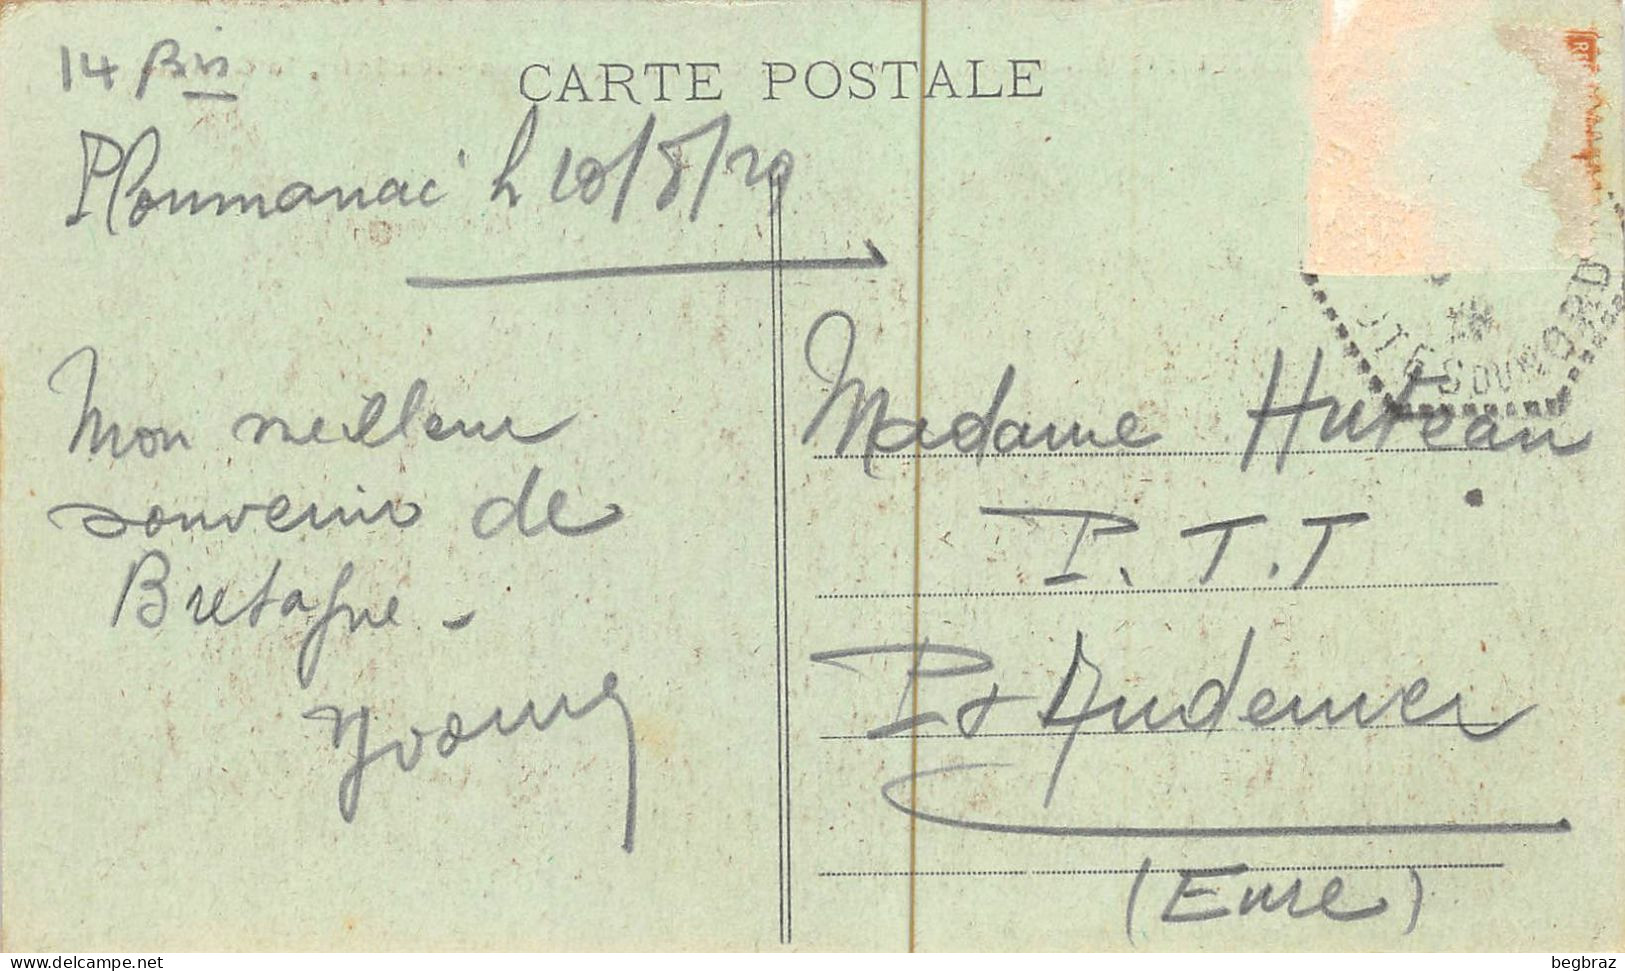 14 Bis
CARTE POSTALE
Ploumanac'h 20/8/29
Mon meilleur
souvenir de
Bretagne -
Yvonne
Madame Huteau
P.T.T
Pt Audemer
(Eure)
CÔTES DU NORD
begbraz